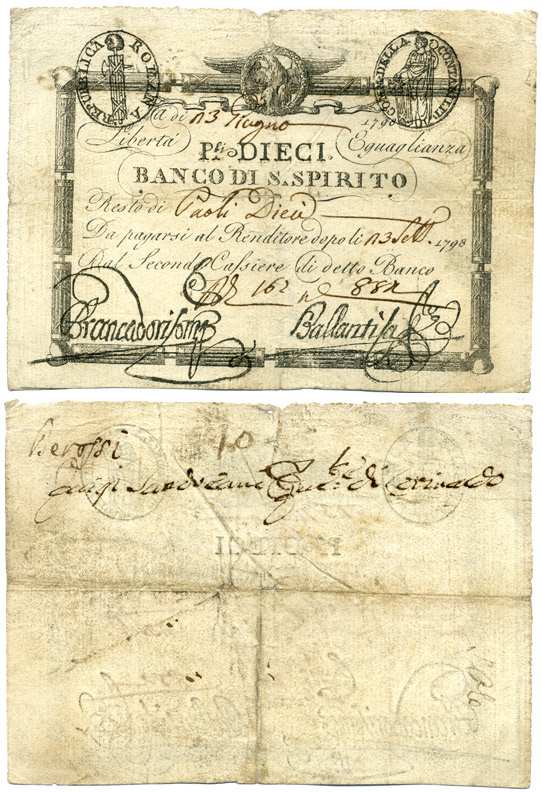 REPUBBLICA ROMANA
COM. DELLA CONTABILITÀ
di 13 Giugno 1798
Libertà Eguaglianza
P.li DIECI.
BANCO DI S. SPIRITO
Resto di Paoli Dieci
Da pagarsi al Renditore dopo li 13 Sett. 1798
Dal Secondo Cassiere di detto Banco
162 n.
Brancadori
Ballanti
Berossi
10
Luigi di Corinaldo